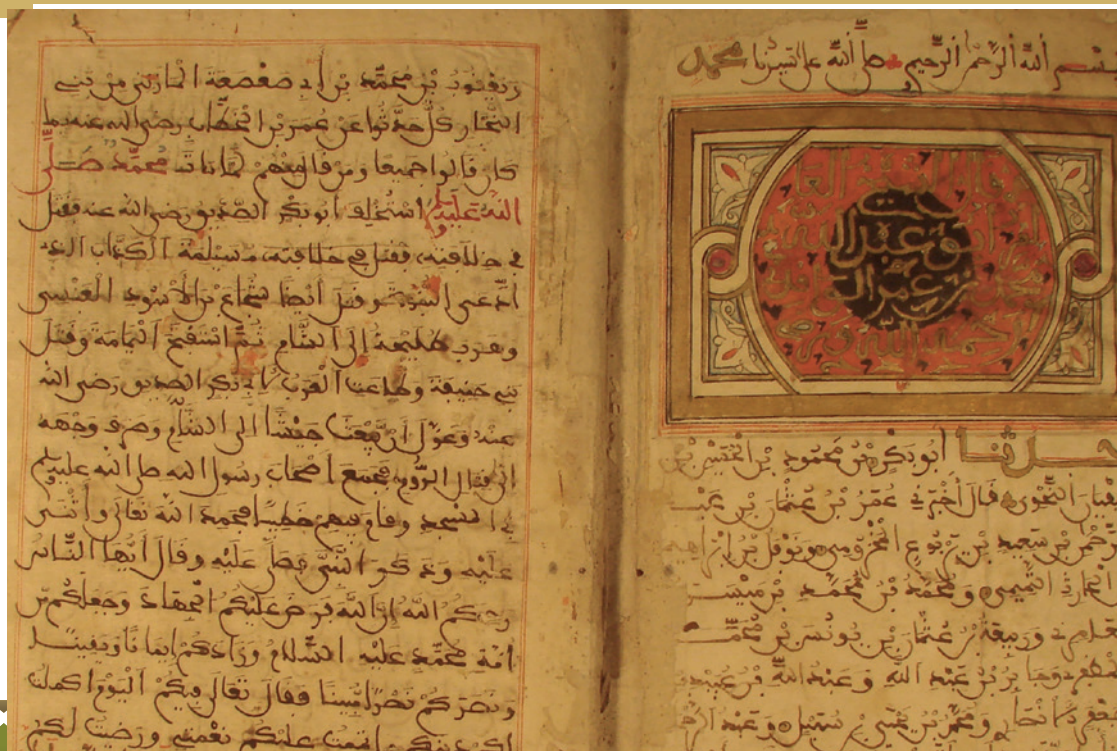 بسم الله الرحمن الرحيم صلى الله على سيدنا محمد
قال الشيخ
عبد الله
بن عمر الواقدي
رحمه الله
حدثنا ابو بكر بن محمود بن
النحوي قال أخبرني عمر بن عثمان بن عبد
الرحمن بن سعيد بن يربوع المخزومي ونوفل بن ابراهيم
التميمي ومحمد بن محمد بن
وربيعة بن عثمان بن يونس بن محمد
وجابر بن عبد الله وعبد الله بن
ومعمر بن وعبد
ويعقوب بن محمد بن ابي صعصعة المازني من بني
النجار كل حدثوا عن عمر بن الخطاب رضي الله عنه بما
كان قالوا جميعا ومن قال منهم لما مات محمد صلى
الله عليه استخلف ابو بكر الصديق رضي الله عنه فقتل
في خلافته فقتل في خلافته مسيلمة الكذاب الذي
ادعى النبوة وقتل أيضا شجاع بن الاسود العنسي
وهرب طليحة الى الشام ثم استفتح اليمامة وقتل
بني حنيفة وطاعت العرب لابي بكر الصديق رضي الله
عنه وعول أن يبعث جيشا الى الشام وصرف وجهه
الى قتال الروم فجمع أصحاب رسول الله صلى الله عليه وسلم
في المسجد وقام فيهم خطيبا فحمد الله تعالى وأثنى
عليه وذكر النبي فصلى عليه وقال أيها الناس
رحمكم الله إن الله فرض عليكم الجهاد وجعلكم من
امة محمد عليه السلام وزادكم إيمانا ويقينا
ونصركم نصرا مبينا فقال تعالى فيكم اليوم اكملت
لكم دينكم واتممت عليكم نعمتي ورضيت لكم